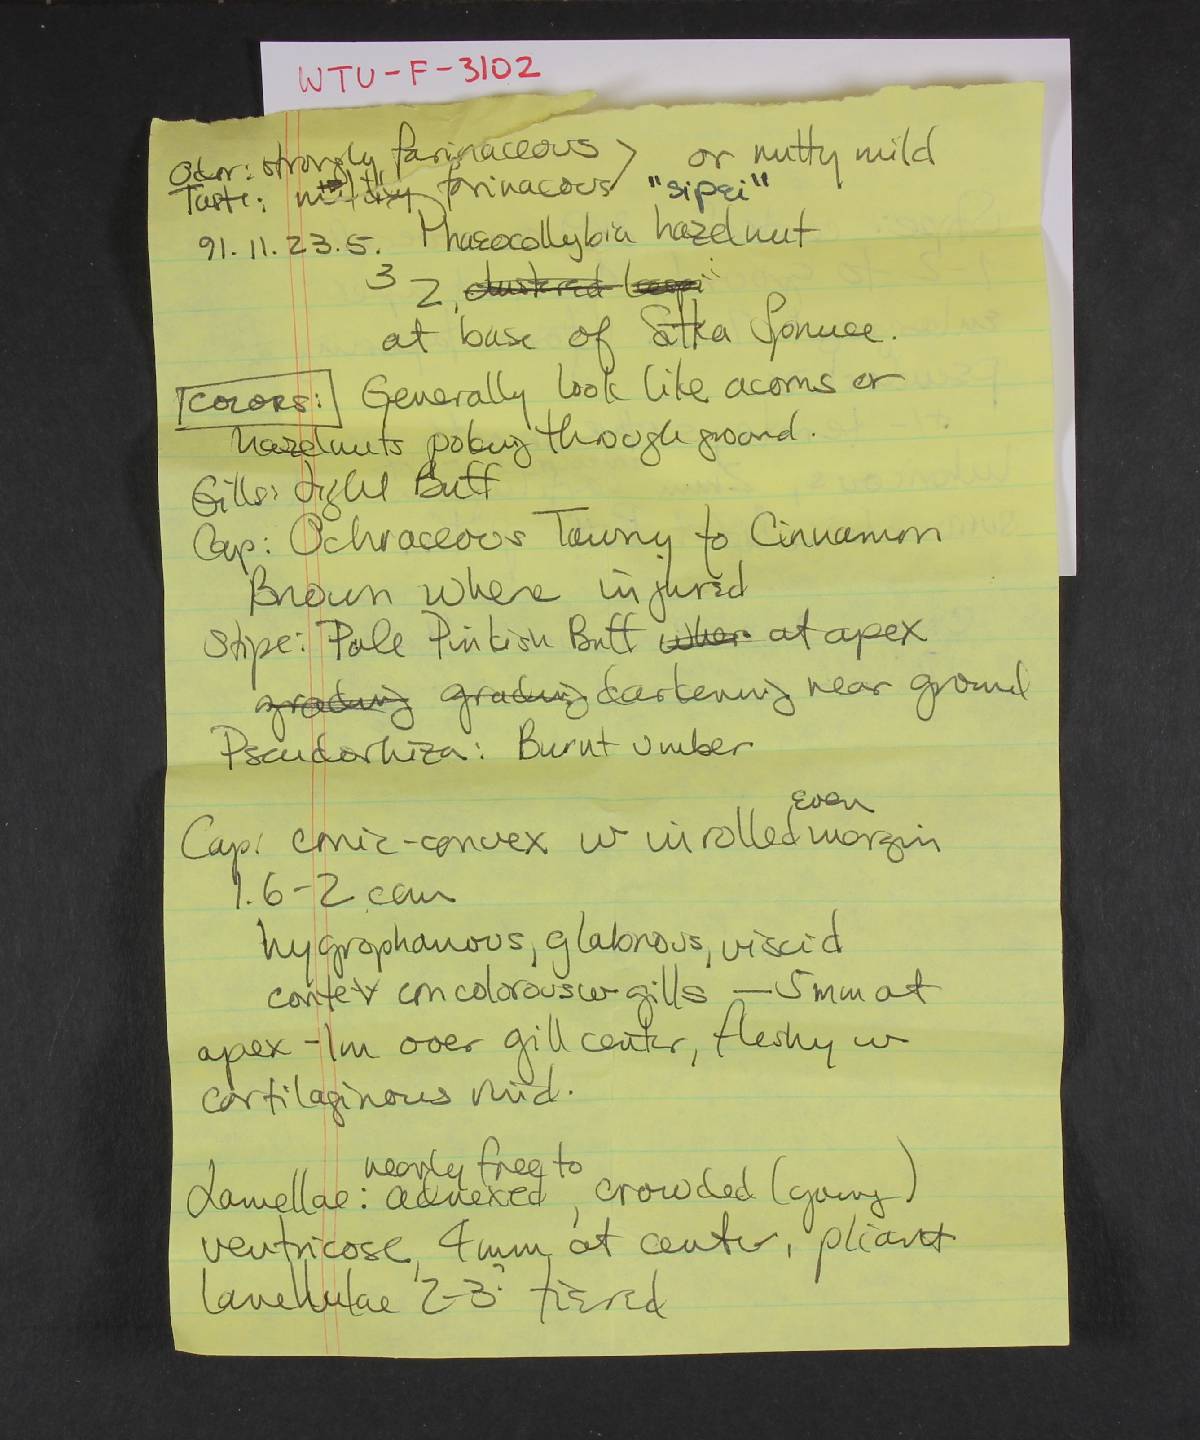 WTU-F-3102
Odor: strongly farinaceous > or nutty mild
Taste: farinacous "sipei"
91.11.23.5. Phaeocollybia hazelnut
3 2, clustered
at base of Sitka Spruce.
COLORS: Generally look like acorns or
hazelnuts poking through ground.
Gills: Light Buff
Cap: Ochraceous Tawny to Cinnamon
Brown where injured
Stipe: Pale Pinkish Buff when at apex
grading grading darkening near ground
Pseudorhiza: Burnt umber
Cap: conic-convex w inrolled even margin
1.6-2 cm
hygrophanous, glabrous, viscid
context concolorous w gills — 5mm at
apex - 1m over gill center, fleshy w
cartilaginous rind.
Lamellae: nearly free to adnexed, crowded (young)
ventricose, 4mm at center, pliant
lamellulae 2-3? tiered